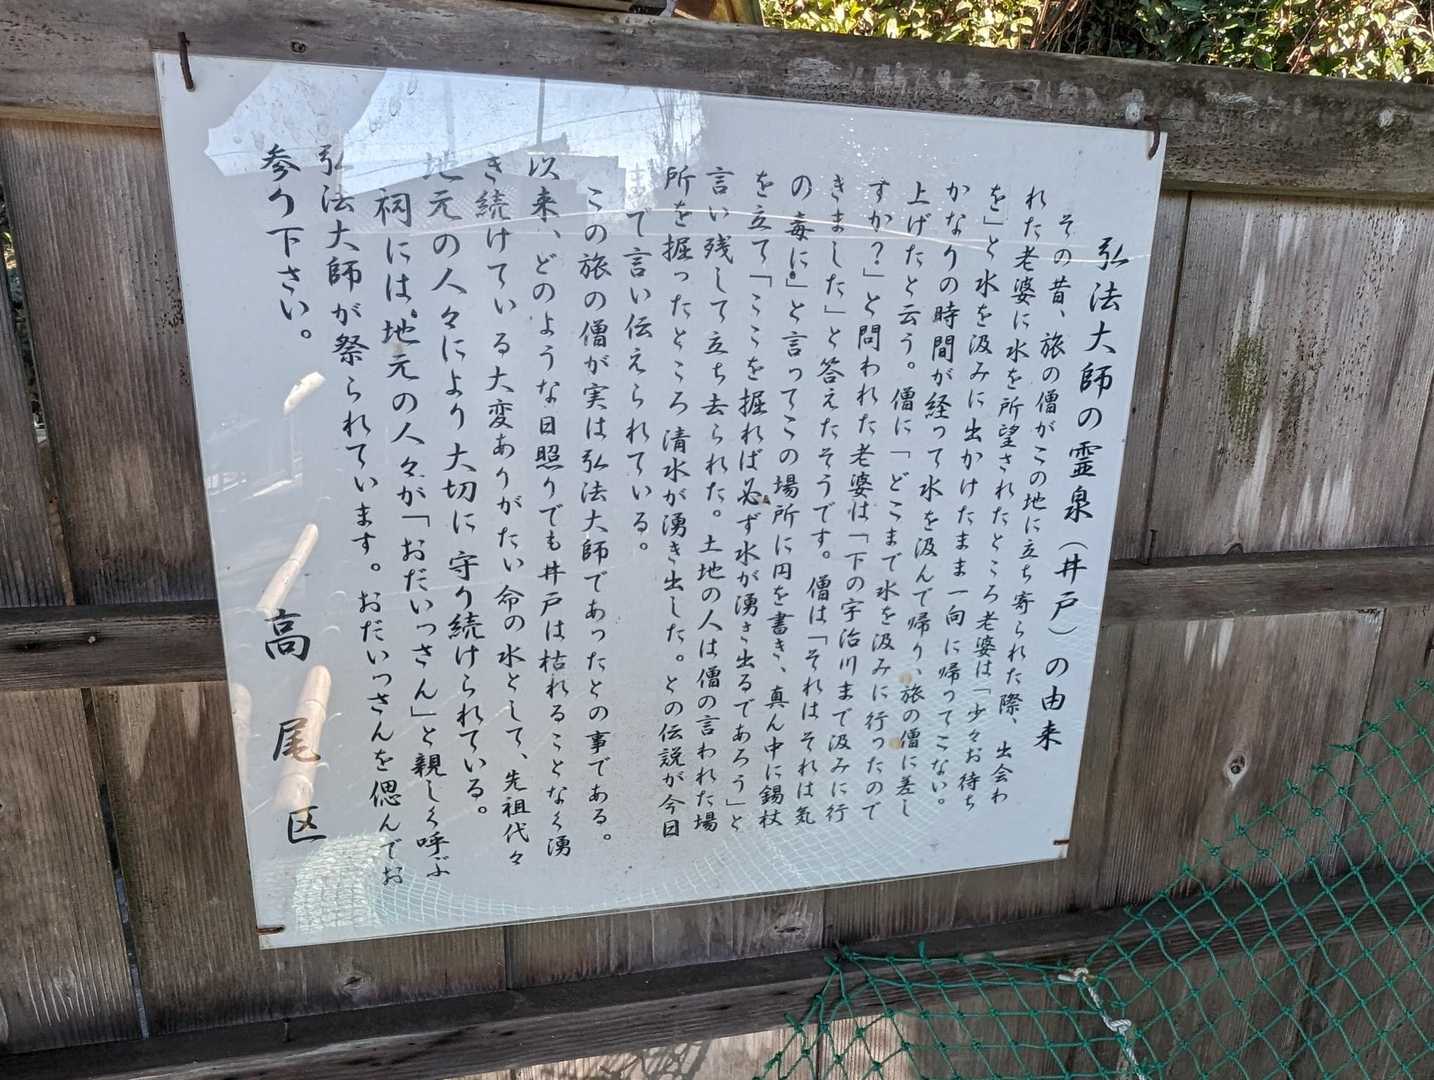 弘法大師の霊泉（井戸）の由来
その昔、旅の僧がこの地に立ち寄られた際、出会わ
れた老婆に水を所望されたところ老婆は「少々お待ち
を」と水を汲みに出かけたまま一向に帰ってこない。
かなりの時間が経って水を汲んで帰り、旅の僧に差し
上げたと云う。僧に「どこまで水を汲みに行ったので
すか？」と問われた老婆は「下の宇治川まで汲みに行
きました」と答えたそうです。僧は「それはそれは気
の毒に」と言ってこの場所に円を書き、真ん中に錫杖
を立て「ここを掘れば必ず水が湧き出るであろう」と
言い残して立ち去られた。土地の人は僧の言われた場
所を掘ったところ清水が湧き出した。との伝説が今日
って言い伝えられている。
この旅の僧が実は弘法大師であったとの事である。
以来、どのような日照りでも井戸は枯れることなく湧
き続けている大変ありがたい命の水として、先祖代々
地元の人々により大切に守り続けられている。
祠には地元の人々が「おだいっさん」と親しく呼ぶ
弘法大師が祭られています。おだいっさんを偲んでお
参り下さい。
高尾区